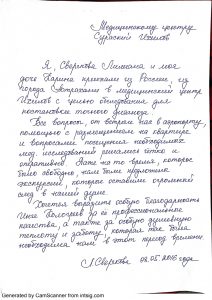 Медицинскому центру
Сураский Ихилов
Я, Сверкова Лилиана и моя
дочь Карина приехали из России, из
города Астрахани в медицинский центр
Ихилов с целью обследования для
постановки точного диагноза.
Все вопросы, от встречи нас в аэропорту,
помощью с размещением на квартире
и вопросами посещения необходимых
мед. исследований решались четко и
оперативно. Даже на то время, которое
было свободно, нам были предложены
экскурсии, которые оставили огромный
след в нашей душе.
Хочется выразить особую благодарность
Инне за её профессиональные
качества, а также за особую душевную
теплоту и заботу, которая так была
необходима нам в этот период времени.
Л. Сверкова 02.05.2016 года.
Generated by CamScanner from intsig.com